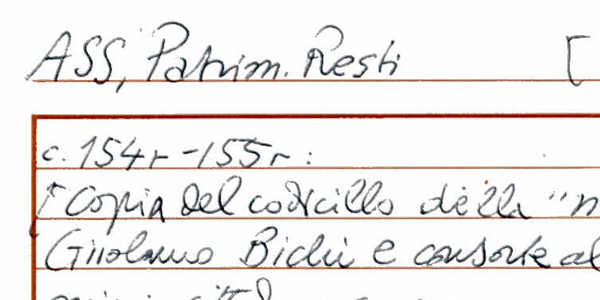 ASS, Patrim. Resti [
c. 154r-155r:
Copia del codicillo della "n
Girolamo Bichi e consorte al